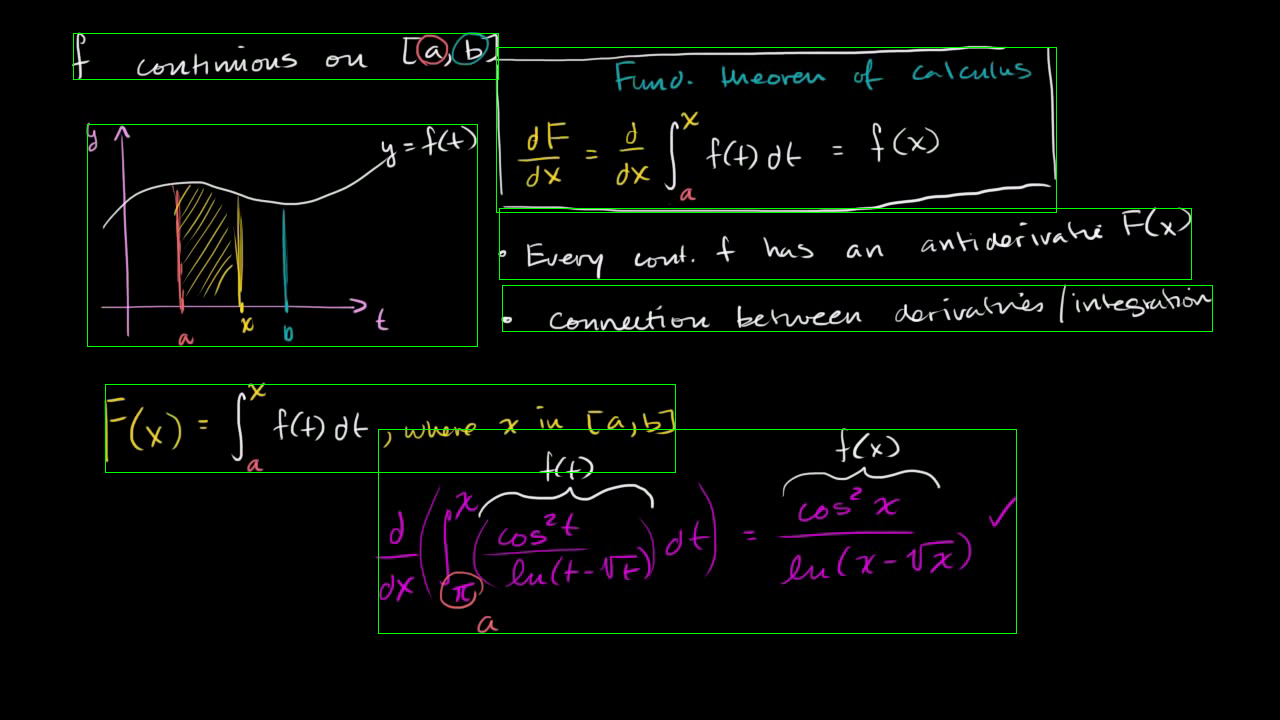 f continious on [a, b]
Fund. theorem of calculus
dF/dx = d/dx ∫_a^x f(t) dt = f(x)
y
y = f(t)
a
x
b
t
• Every cont. f has an antiderivative F(x)
• connection between derivatives / integration
F(x) = ∫_a^x f(t) dt, where x in [a, b]
f(t)
f(x)
d/dx (∫_π^x (cos² t / ln(t - √t)) dt) = cos² x / ln(x - √x) ✓
a